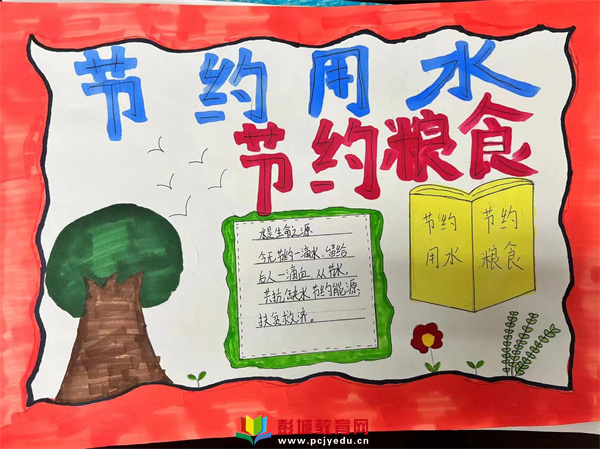 节约用水
节约粮食
水是生命之源
今天节约一滴水,留给
后人一滴血,从节水,
共抗缺水,节约能源,
扶贫救济。
节约
用水
节约
粮食
彭城教育网
www.pcjyedu.cn